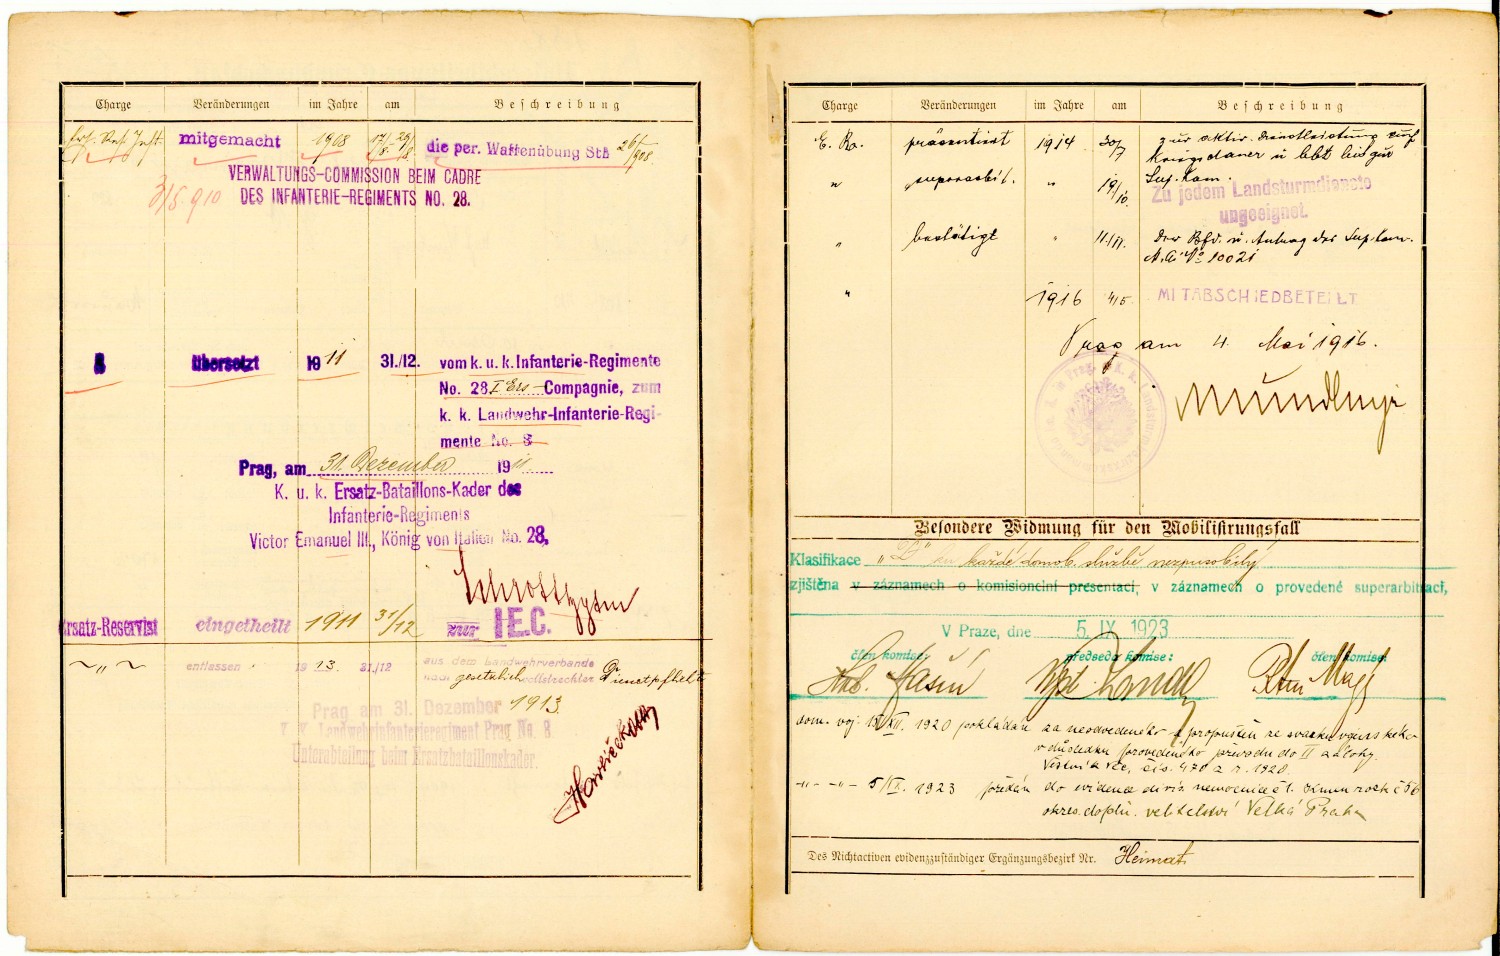 Charge Veränderungen im Jahre am Beschreibung
Ers. Res. Inft. mitgemacht 1908 17/8 - 29/8. die per. Waffenübung Stà 26/5 908
VERWALTUNGS-COMMISSION BEIM CADRE
3/5. 910 DES INFANTERIE-REGIMENTS NO. 28.
übersetzt 1911 31./12. vom k. u. k. Infanterie-Regimente
No. 28 I. Ers Compagnie, zum
k. k. Landwehr-Infanterie-Regi-
mente No. 8
Prag, am 31. Dezember 1911
K. u. k. Ersatz-Bataillons-Kader des
Infanterie-Regiments
Victor Emanuel III., König von Italien No. 28,
Ersatz-Reservist eingetheilt 1911 31/12 zur I E.C.
〃 entlassen 1913. 31./12 aus dem Landwehrverbande
nach gesetzlich vollstreckter Dienstpflicht
Prag am 31. Dezember 1913.
K. K. Landwehrinfanterieregiment Prag No. 8
Unterabteilung beim Ersatzbataillonskader.
Charge Veränderungen im Jahre am Beschreibung
E. R. präsentirt 1914 30/7 zur aktiv. Dienstleistung auf
Kriegsdauer u
" superarbit. " 19/10. Sup. Kom.
Zu jedem Landsturmdienste
ungeeignet.
" bestätigt " 11./11. Der Bfd. u. Antrag der Sup. kom.
A. No 10021
" 1916 4/5. MIT ABSCHIED BETEILT
Prag am 4. Mai 1916.
Besondere Widmung für den Mobilisirungsfall
Klasifikace „D" ku každé domob. službě nezpůsobilý
zjištěna v záznamech o komisionelní presentaci, v záznamech o provedené superarbitraci,
V Praze, dne 5. IX 1923
člen komise: předseda komise: člen komise:
dom. voj. 15/XII. 1920 pokládán za neodvedeného a propuštěn ze svazku vojenského
v důsledku provedeného převodu do II zálohy.
Věstník čís. 470 z r. 1920.
-〃- -〃- 5/IX. 1923 předán do evidence divis. nemocnice č 1. Kmen. rock č 56
okres. doplň. velitelství Velká Praha
Des Nichtactiven evidenzzuständiger Ergänzungsbezirk Nr. Heimat